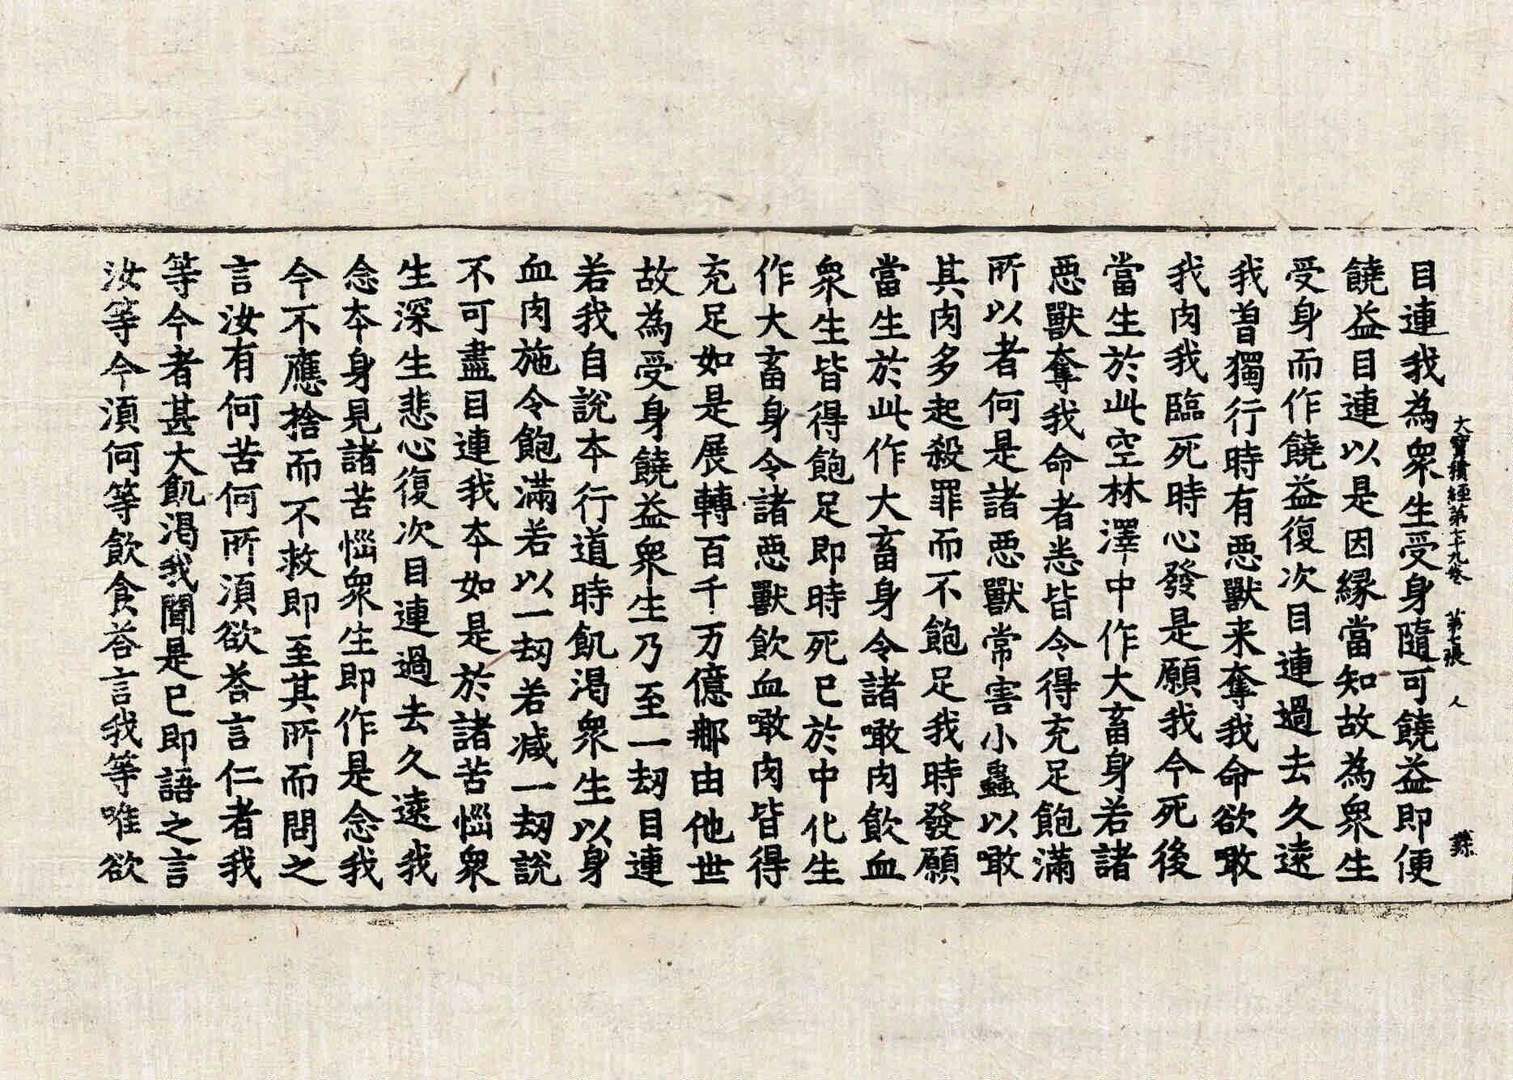 大寶積經第七十九卷 第七張 人
目連我為衆生受身隨可饒益即便
饒益目連以是因緣當知故為衆生
受身而作饒益復次目連過去久遠
我曽獨行時有惡獸来奪我命欲噉
我肉我臨死時心發是願我今死後
當生於此空林澤中作大畜身若諸
惡獸奪我命者悉皆令得充足飽滿
所以者何是諸惡獸常害小蟲以噉
其肉多起殺罪而不飽足我時發願
當生於此作大畜身令諸噉肉飲血
衆生皆得飽足即時死已於中化生
作大畜身令諸惡獸飲血噉肉皆得
充足如是展轉百千万億那由他世
故為受身饒益衆生乃至一劫目連
若我自說本行道時飢渴衆生以身
血肉施令飽滿若以一劫若減一劫說
不可盡目連我本如是於諸苦惱衆
生深生悲心復次目連過去久遠我
念本身見諸苦惱衆生即作是念我
今不應捨而不救即至其所而問之
言汝有何苦何所須欲荅言仁者我
等今者甚大飢渴我聞是已即語之言
汝等今須何等飲食荅言我等唯欲